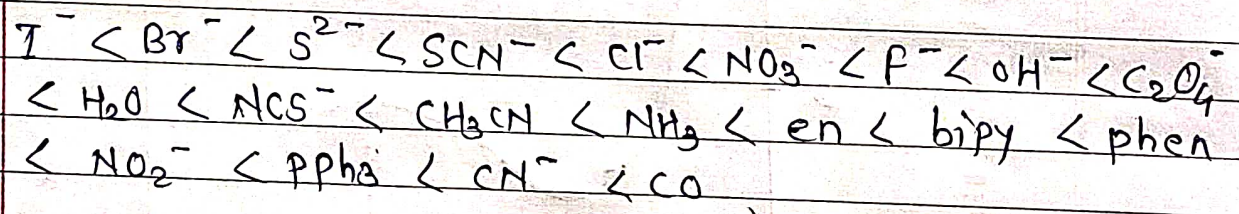 I⁻ < Br⁻ < S²⁻ < SCN⁻ < Cl⁻ < NO₃⁻ < F⁻ < OH⁻ < C₂O₄⁻
< H₂O < NCS⁻ < CH₃CN < NH₃ < en < bipy < phen
< NO₂⁻ < pph₃ < CN⁻ < CO